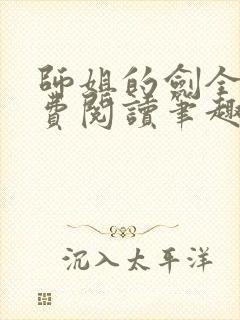 師姐的劍全
費閱讀筆趣
沉入太平洋